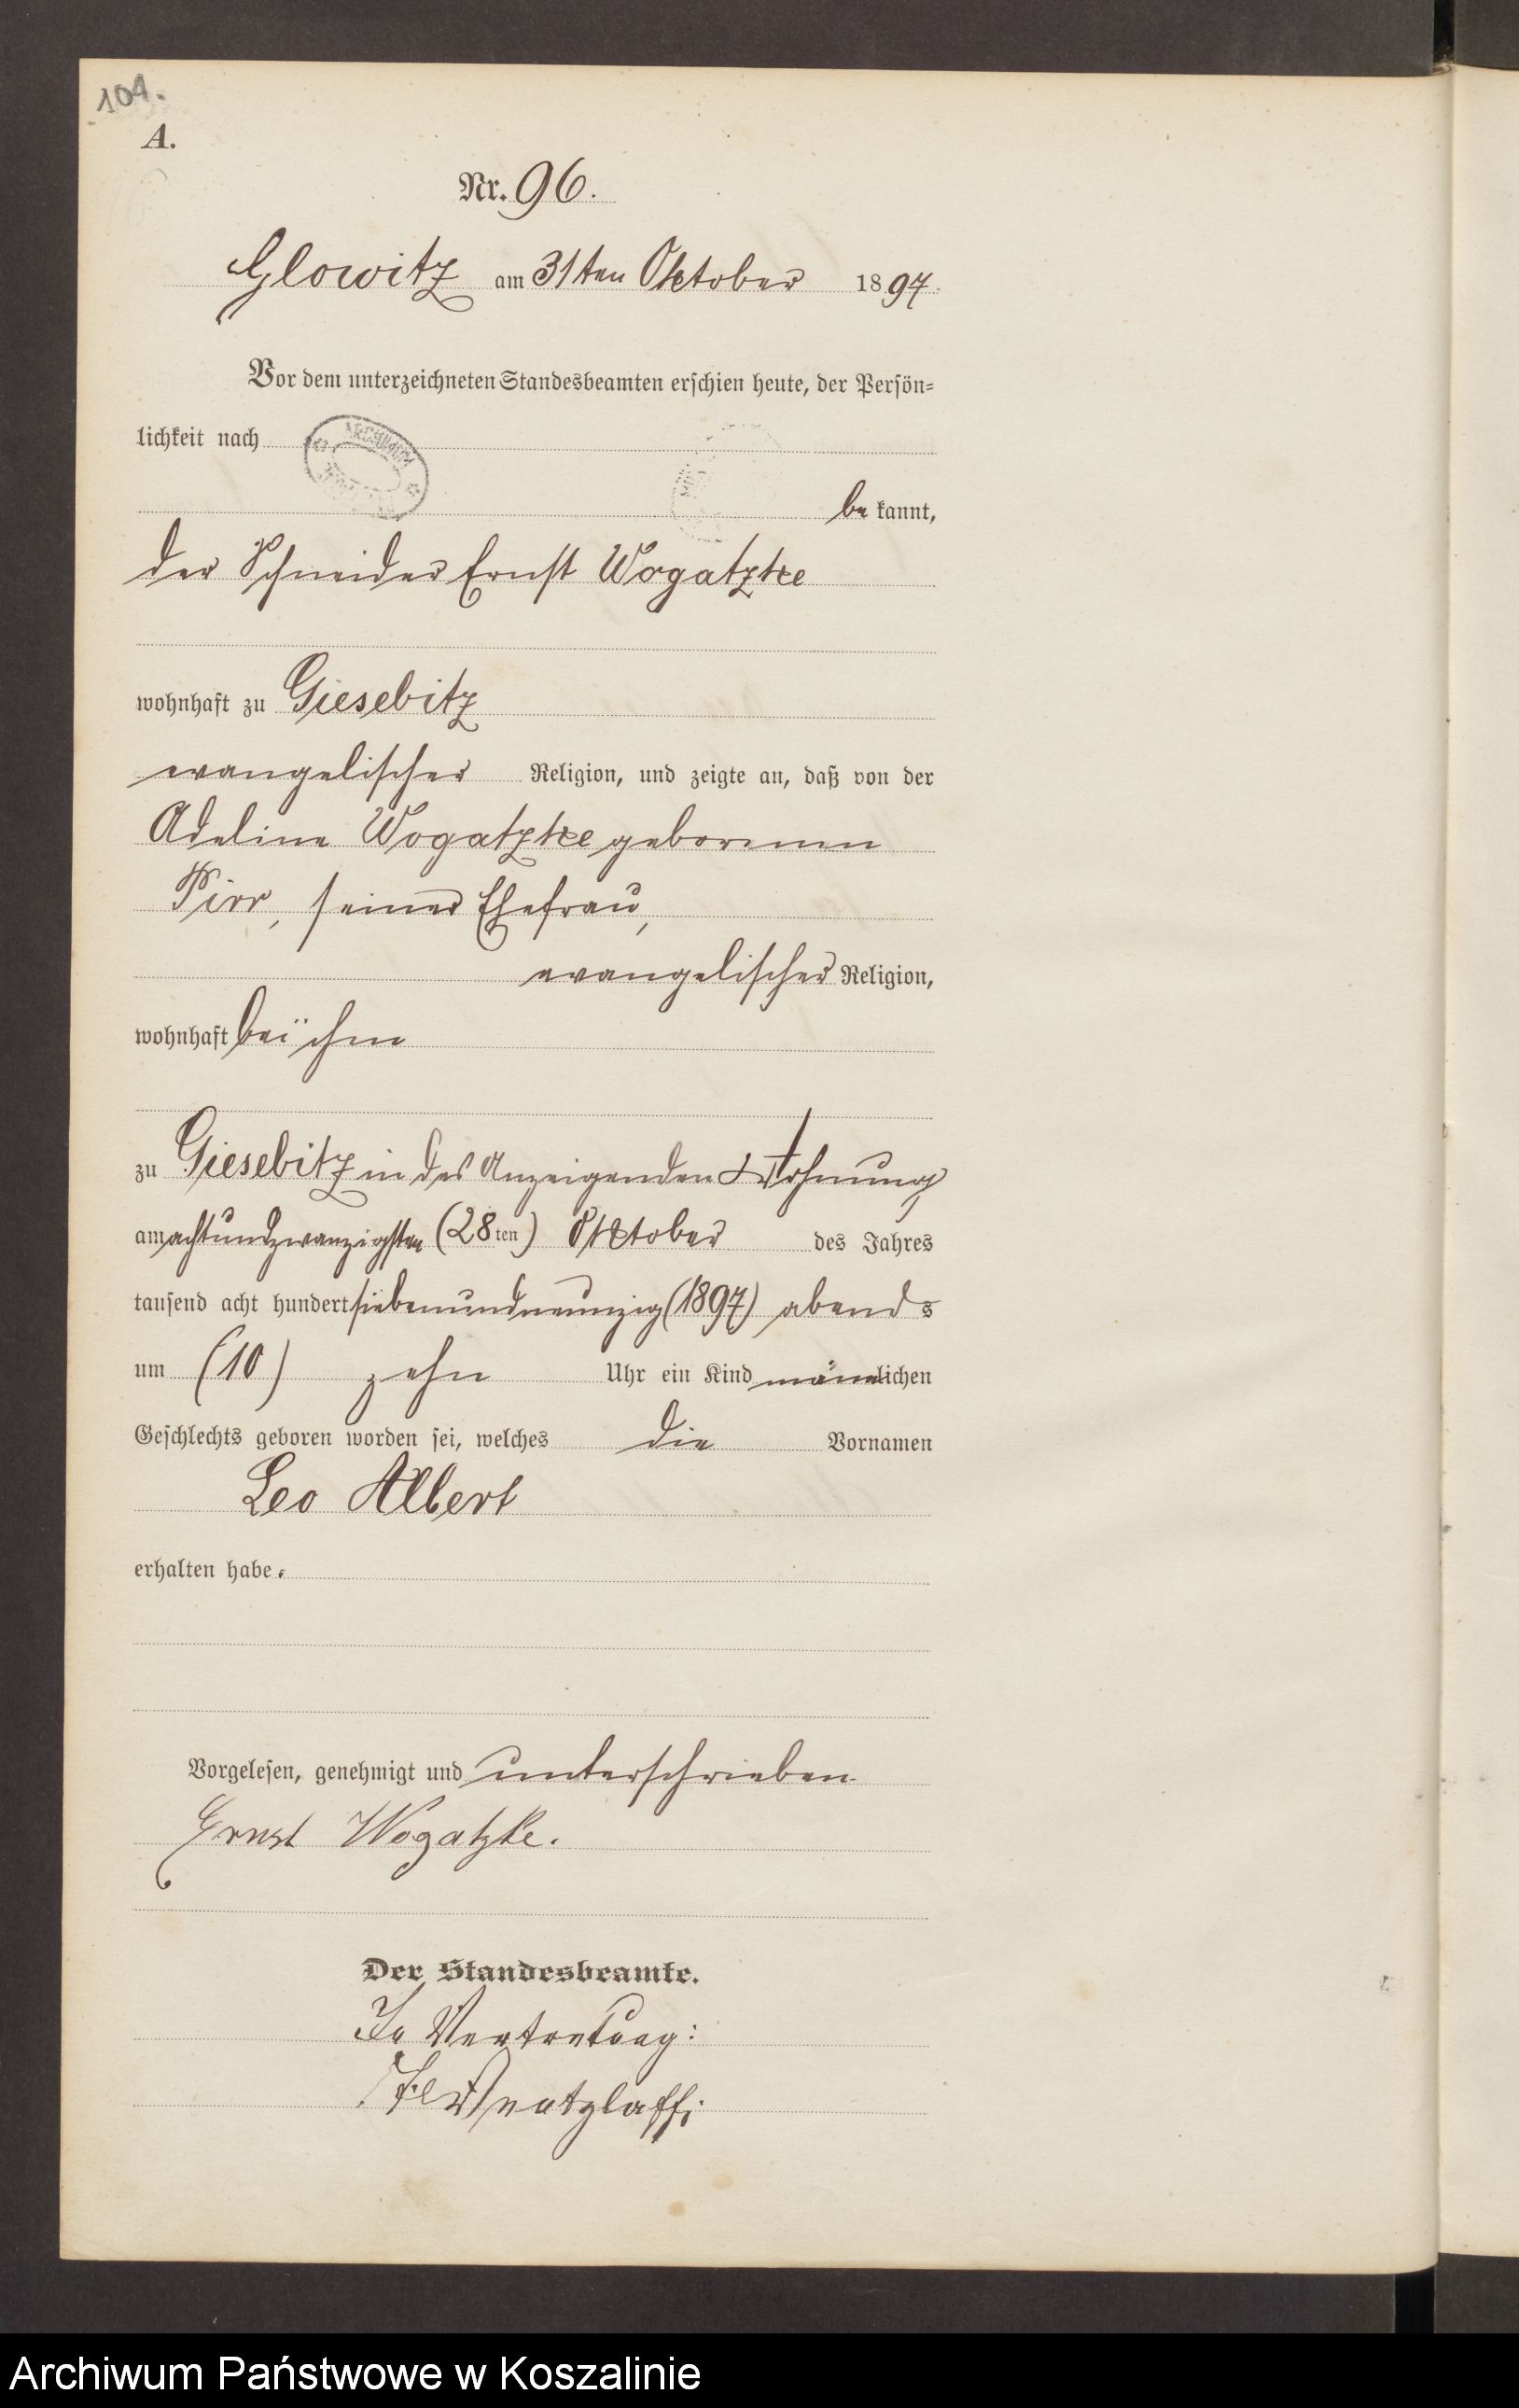 104.
A.
Nr. 96.
Glowitz am 31ten Oktober 1897.
Vor dem unterzeichneten Standesbeamten erschien heute, der Persön=
lichkeit nach
be kannt,
der Schneider Ernst Wogatzke
wohnhaft zu Giesebitz
evangelischer Religion, und zeigte an, daß von der
Adeline Wogatzke geborenen
Pirr, seiner Ehefrau,
evangelischer Religion,
wohnhaft bei ihm
zu Giesebitz in des Anzeigenden Wohnung
am achtundzwanzigsten (28ten) Oktober des Jahres
tausend acht hundert siebenundneunzig (1897) abends
um (10) zehn Uhr ein Kind männlichen
Geschlechts geboren worden sei, welches die Vornamen
Leo Albert
erhalten habe.
Vorgelesen, genehmigt und unterschrieben
Ernst Wogatzke.
Der Standesbeamte.
In Vertretung:
Archiwum Państwowe w Koszalinie